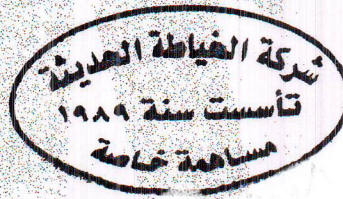 شركة الخياطة الحديثة
تأسست سنة ١٩٨٩
مساهمة خاصة